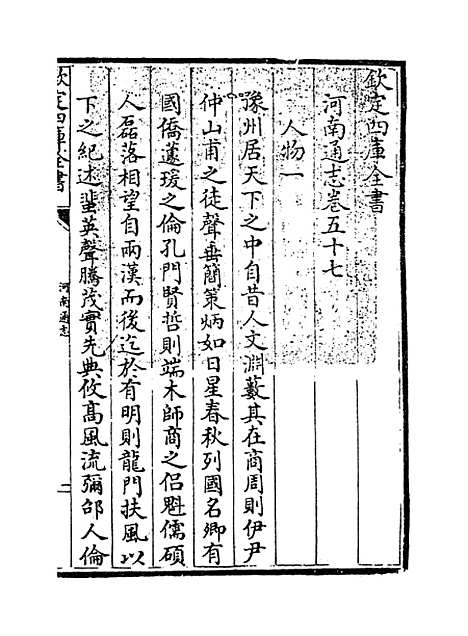 欽定四庫全書
河南通志卷五十七
人物一
豫州居天下之中自昔人文淵藪其在商周則伊尹
仲山甫之徒聲垂簡策炳如日星春秋列國名卿有
國僑蘧瑗之倫孔門賢哲則端木師商之侣魁儒碩
人磊落相望自兩漢而後迄於有明則龍門扶風以
下之紀述蜚英聲騰茂實先典攸髙風流彌邵人倫
欽定四庫全書
河南通志